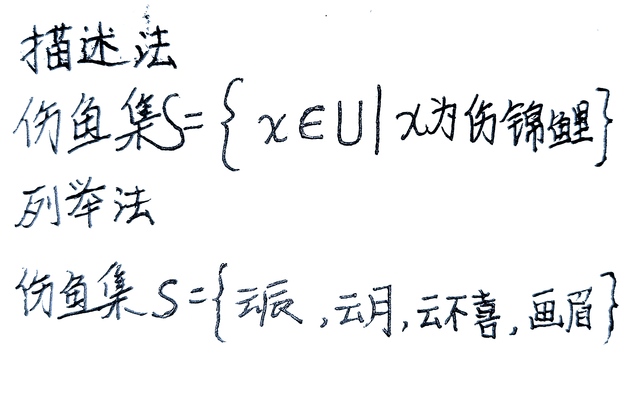 描述法
伤鱼集S={x∈U|x为伤锦鲤}
列举法
伤鱼集S={云辰,云月,云不喜,画眉}